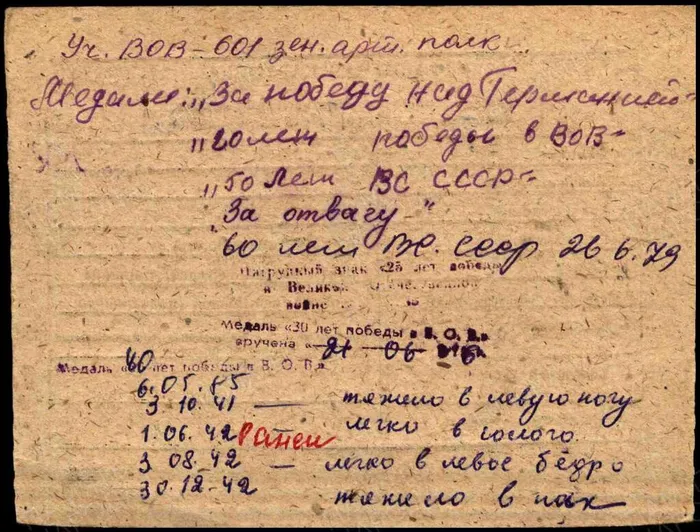 Уч. ВОВ - 601 зен. арт. полк
Медали: „За победу над Германией"
„20 лет победы в ВОВ"
„50 лет ВС СССР"
„За отвагу"
60 лет ВС. СССР 26 6.79
Нагрудный знак «25 лет победы
в Великой Отечественной
войне
Медаль «30 лет победы в В. О. В.»
вручена « 21 06
Медаль «40 лет победы в В. О. В.»
6.05.85
3.10.41 — тяжело в левую ногу
1.06.42 Ранен — легко в
3.08.42 — легко в левое бедро
30.12.42 тяжело в пах